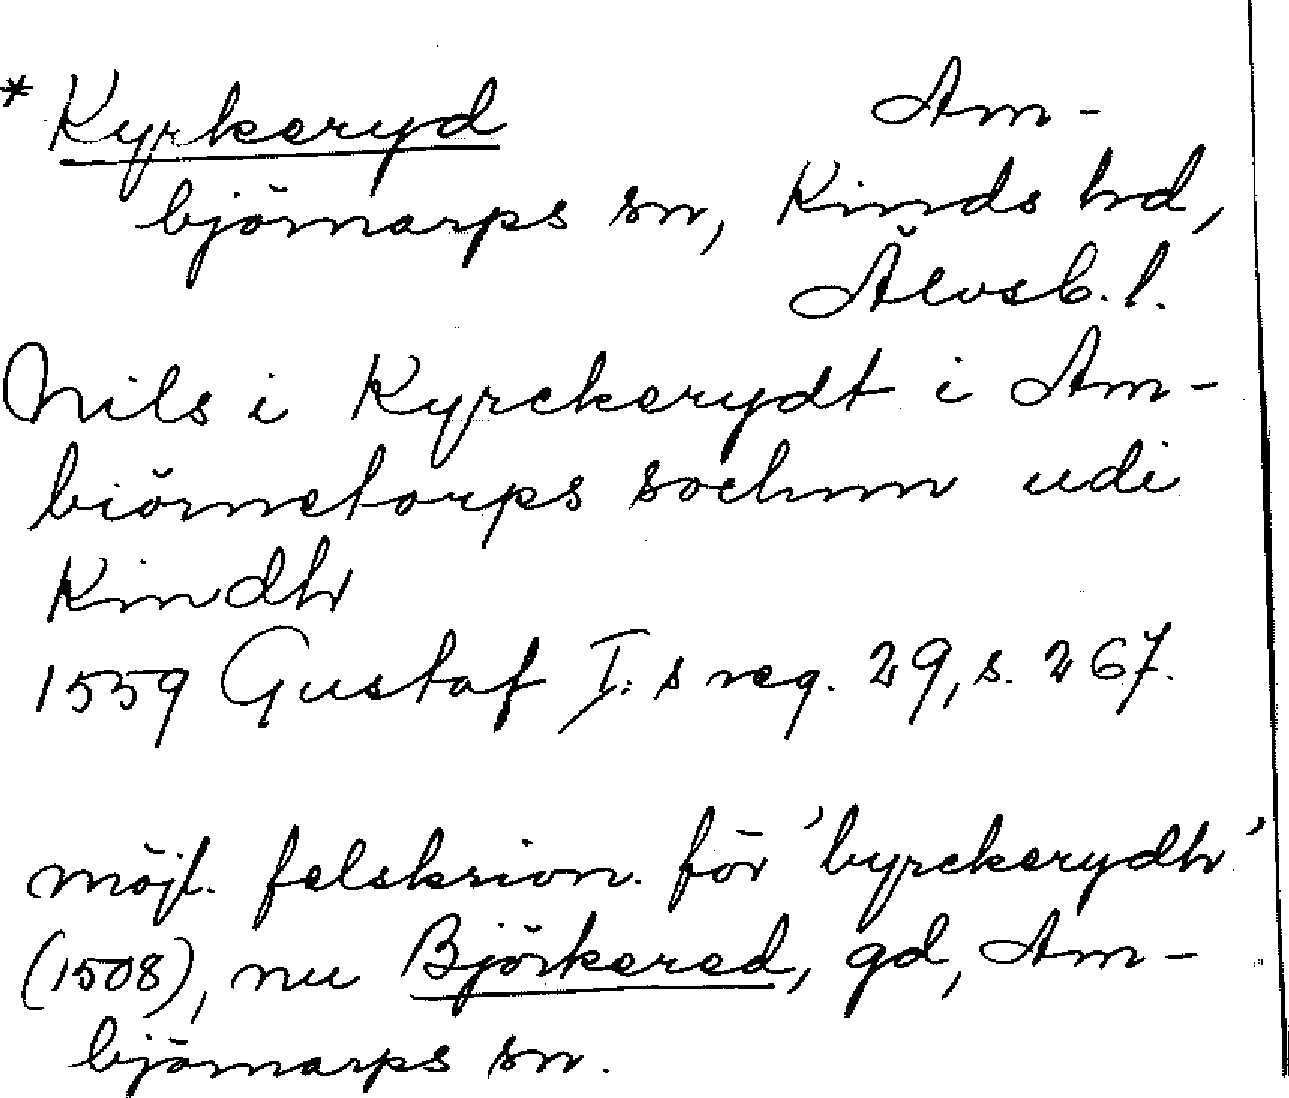 * Kyrkeryd Am-
björnarps sn, Kinds hd,
Älvsb. l.
Nils i Kyrckerydt i Am-
biörnetorps sochnn udi
Kindh
1559 Gustaf I:s reg. 29, s. 267.
möjl. felskrivn. för 'byrckerydh'
(1508), nu Björkered, gd, Am-
björnarps sn.